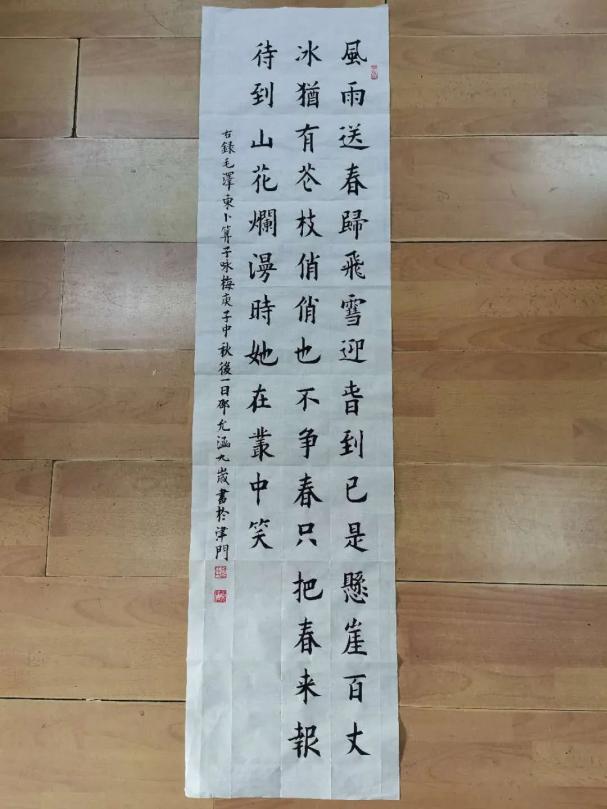 風雨送春歸飛雪迎旾到已是懸崖百丈
冰猶有芲枝俏俏也不争春只把春来報
待到山花爛漫時她在叢中笑
右錄毛澤東卜算子咏梅庚子中秋後一日鄧允涵九歲書於津門